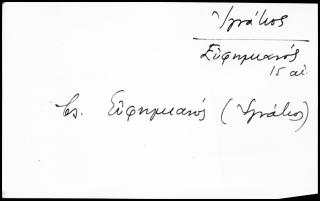 Ἰγνάτιος
Εὐφημιανός
15 αἰ.
Βλ. Εὐφημιανός (Ἰγνάτιος)